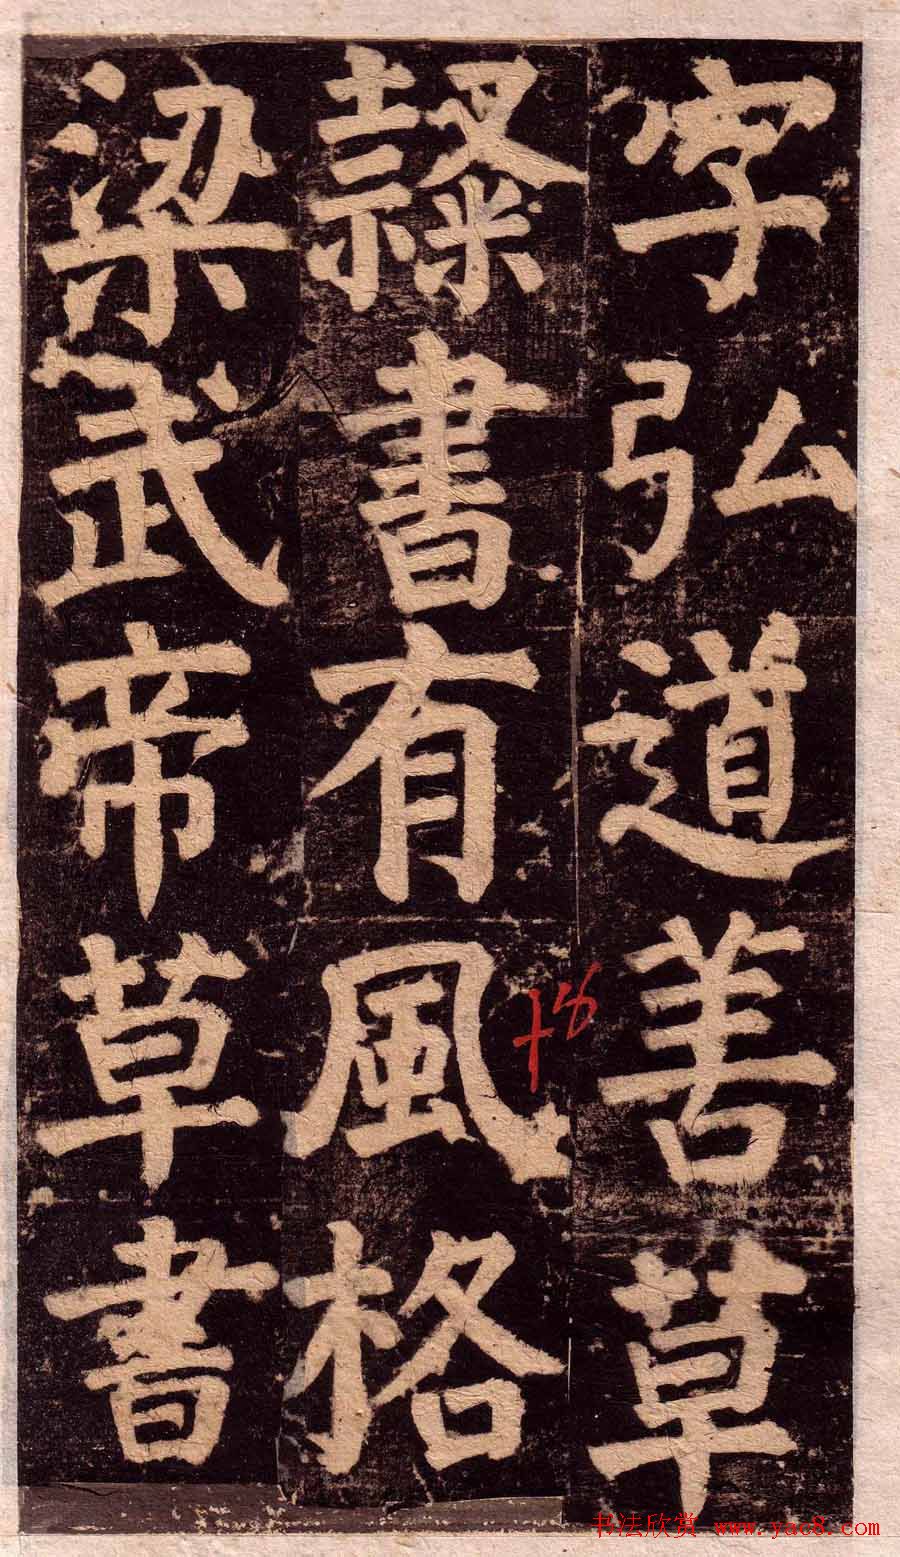 字弘道善草
隸書有風格
梁武帝草書
书法欣赏 www.yac8.com